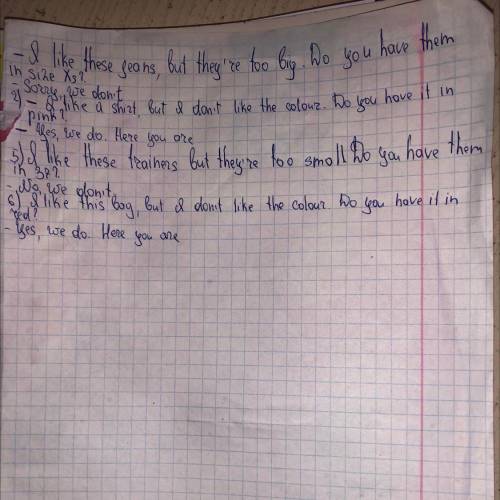 - I like these jeans, but they're too big. Do you have them
in size Xs?
- Sorry, we don't.
2) - I like a shirt, but I don't like the colour. Do you have it in
pink?
- Yes, we do. Here you are
5) I like these trainers but they're too small Do you have them
in 38?
- No, we don't.
6) I like this bag, but I don't like the colour Do you have it in
red?
- Yes, we do. Here you are